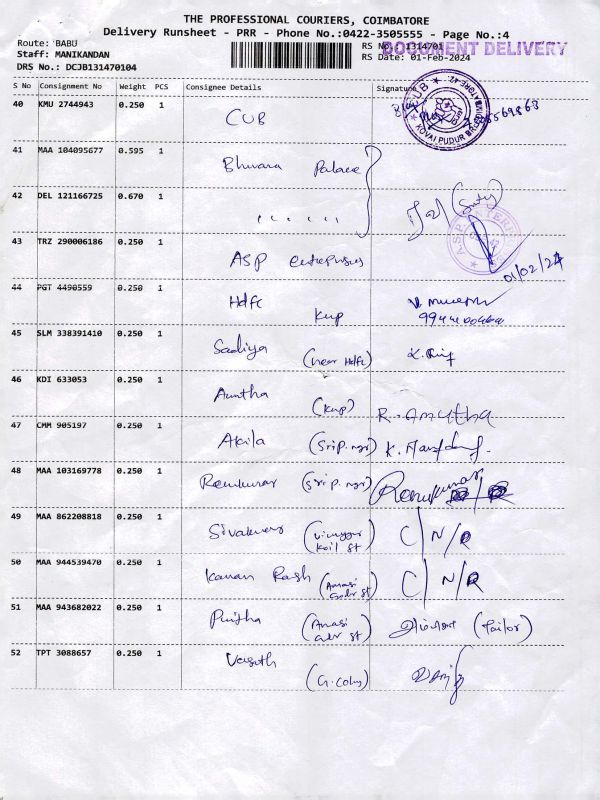 THE PROFESSIONAL COURIERS, COIMBATORE
Delivery Runsheet - PRR - Phone No.:0422-3505555 - Page No.:4
Route: BABU
Staff: MANIKANDAN
DRS No.: DCJB131470104
RS No.: 1314701
DOCUMENT DELIVERY
RS Date: 01-Feb-2024
S No Consignment No Weight PCS Consignee Details Signature
40 KMU 2744943 0.250 1 CUB
CUB
KOVAI PUDUR
41 MAA 104095677 0.595 1 Palace
42 DEL 121166725 0.670 1 " " " " " "
43 TRZ 290006186 0.250 1 ASP
01/02/24
44 PGT 4490559 0.250 1 Hdfc kup
45 SLM 338391410 0.250 1 Sadiya (near Hdfc)
46 KDI 633053 0.250 1 Amutha (kup) R. Amutha
47 CMM 905197 0.250 1 Akila (Sri p. ngr)
48 MAA 103169778 0.250 1 Ramkumar (Sri p. ngr)
49 MAA 862208818 0.250 1 Sivakumar (Vinayagar Koil st) C/N/R
50 MAA 944539470 0.250 1 C/N/R
51 MAA 943682022 0.250 1 (Tailor)
52 TPT 3088657 0.250 1 (G. colny)